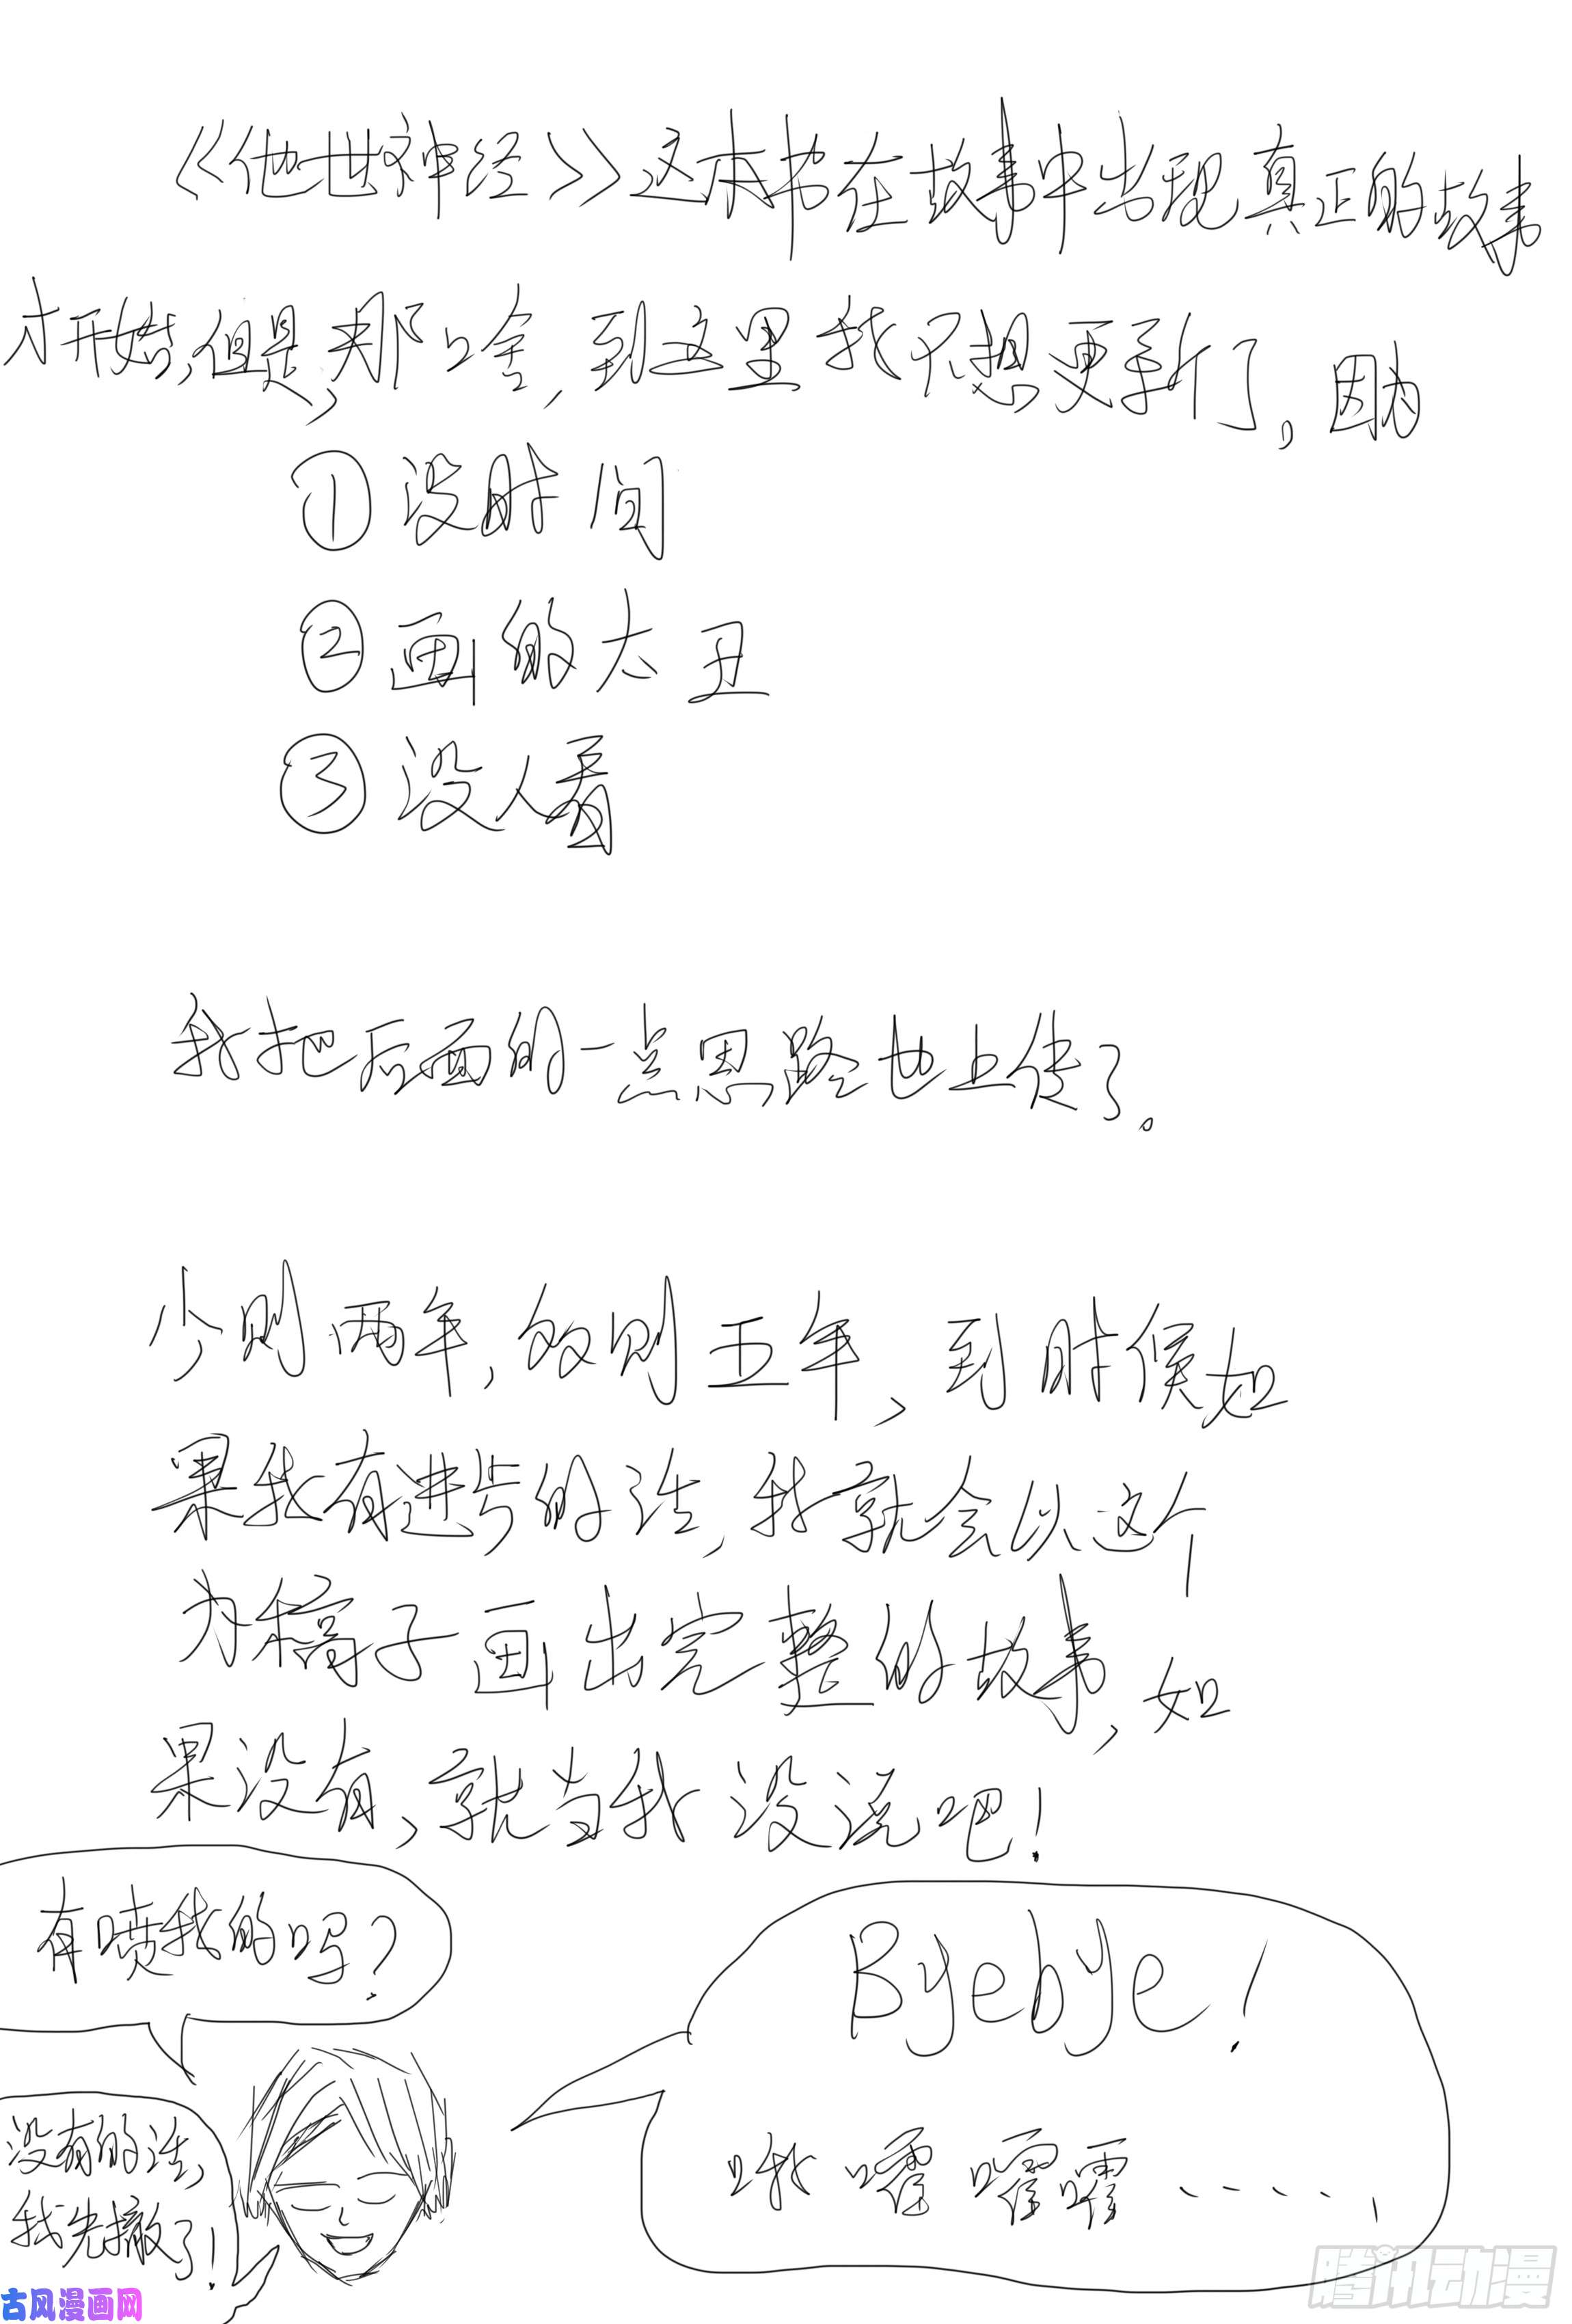 《他世神经》这本书在故事中出现真正的故事
才开始,但是,那啥,到这里我不想更新了,因为
①没时间
②画的太丑
③没人看
我把后面的一点思路也上传了。
少则两年,多则五年,到时候如
果我有进步的话,我就会以这个
为稿子画出完整的故事,如
果没有,就当我没说吧!
有喷我的吗?
没有的话,
我先撤了!
Byebye!
哦嚯嚯嚯.....!
古风漫画网
腾讯动漫